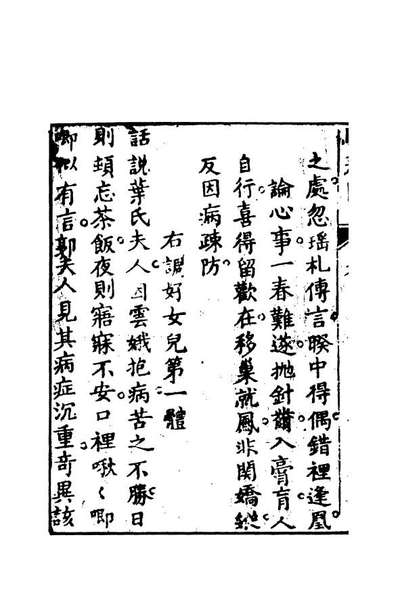 之處忽瑶札傳言暌中得偶錯裡逢凰
論心事一春難遂抛針黹入膏肓人
自行喜得留歡在移巢就鳳非関嬌縱
反因病疎防
右調好女兒第一體
話説葉氏夫人因雲娥抱病苦之不勝日
則頓忘茶飯夜則寤寐不安口裡啾〻唧
唧似有言郭夫人見其病症沉重奇異該